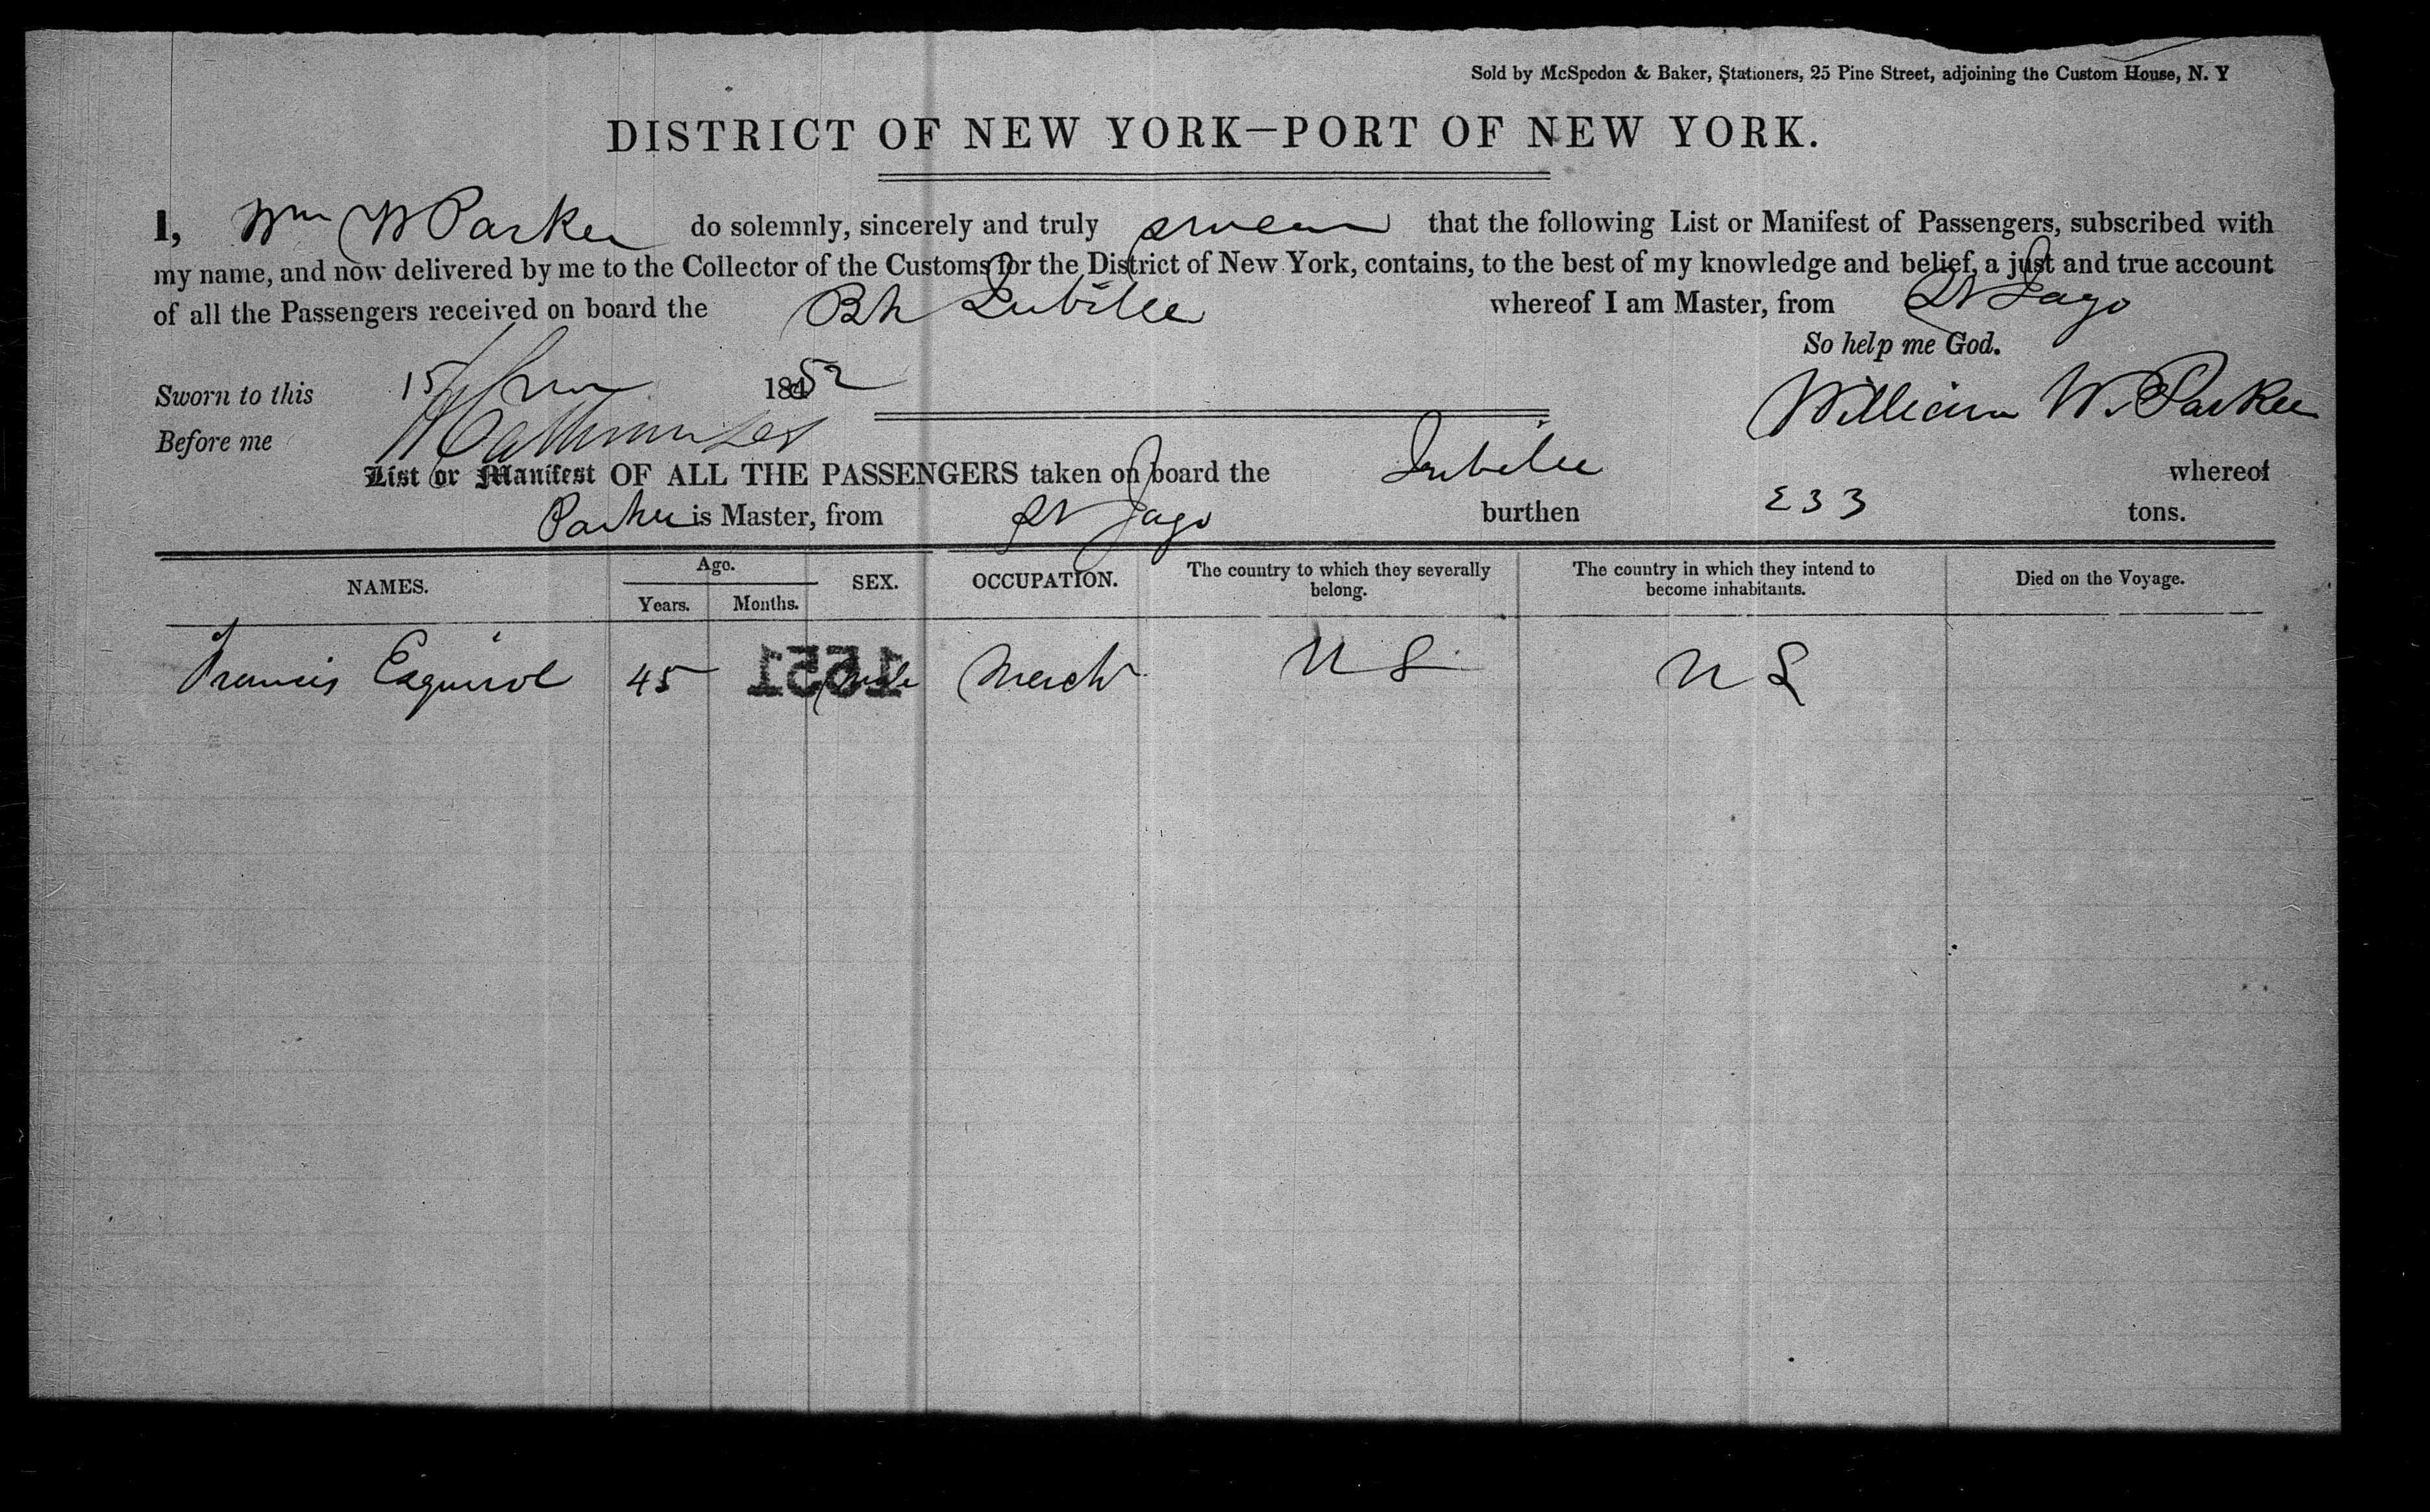 Sold by McSpedon & Baker, Stationers, 25 Pine Street, adjoining the Custom House, N. Y
DISTRICT OF NEW YORK—PORT OF NEW YORK.
I, Wm W Parker do solemnly, sincerely and truly swear that the following List or Manifest of Passengers, subscribed with
my name, and now delivered by me to the Collector of the Customs for the District of New York, contains, to the best of my knowledge and belief, a just and true account
of all the Passengers received on board the Bk Jubilee whereof I am Master, from St Jago
So help me God.
Sworn to this 15 1852
William W. Parker
Before me
List or Manifest OF ALL THE PASSENGERS taken on board the Jubilee whereof
Parker is Master, from St Jago burthen 233 tons.
NAMES. Age. Years. Months. SEX. OCCUPATION. The country to which they severally belong. The country in which they intend to become inhabitants. Died on the Voyage.
Francis Esquirol 45 male Merch US US
1551